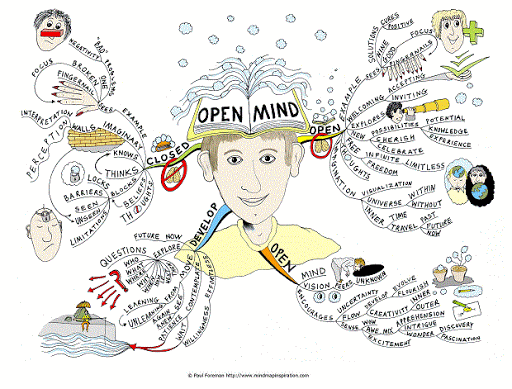 OPEN MIND
CLOSED
THINKS
KNOWS
BLOCKS
LOCKS
BARRIERS
SEEN
UNSEEN
LIMITATIONS
BELIEFS
THOUGHTS
PERCEPTION
INTERPRETATION
WALLS
IMAGINARY
EXAMPLE
SEES
ONE
BROKEN
FINGERNAIL
FOCUS
NEGATIVITY
"BAD"
PROBLEMS
OPEN
EXAMPLE
SEES
NINE
GOOD
FINGERNAILS
FOCUS
POSITIVE
CURES
SOLUTIONS
WELCOMING
ACCEPTING
INVITING
EXPLORES
NEW
POSSIBILITIES
POTENTIAL
KNOWLEDGE
EXPERIENCE
CHERISH
CELEBRATE
FREE
THOUGHTS
INFINITE
LIMITLESS
FREEDOM
IMAGINATION
VISUALIZATION
UNIVERSE
WITHIN
WITHOUT
INNER
TIME
TRAVEL
PAST
FUTURE
NOW
DEVELOP
FUTURE NOW
EXPLORE
QUESTIONS
WHO
WHAT
WHERE
WHY
LEARNING
UNLEARNING
FROM
AGAIN
ANEW
PATIENCE
SEE
MOVE
WAIT
CONTEMPLATE
WILLINGNESS
OPEN
MIND
VISION
EYES
FEEL
UNKNOWN
UNCERTAINTY
DEVELOP
EVOLVE
FLOURISH
FLOW
CREATIVITY
INNER
OUTER
SENSE
WOW
AWE
MIX
APPREHENSION
INTRIGUE
EXCITEMENT
WONDER
DISCOVERY
FASCINATION
© Paul Foreman http://www.mindmapinspiration.com